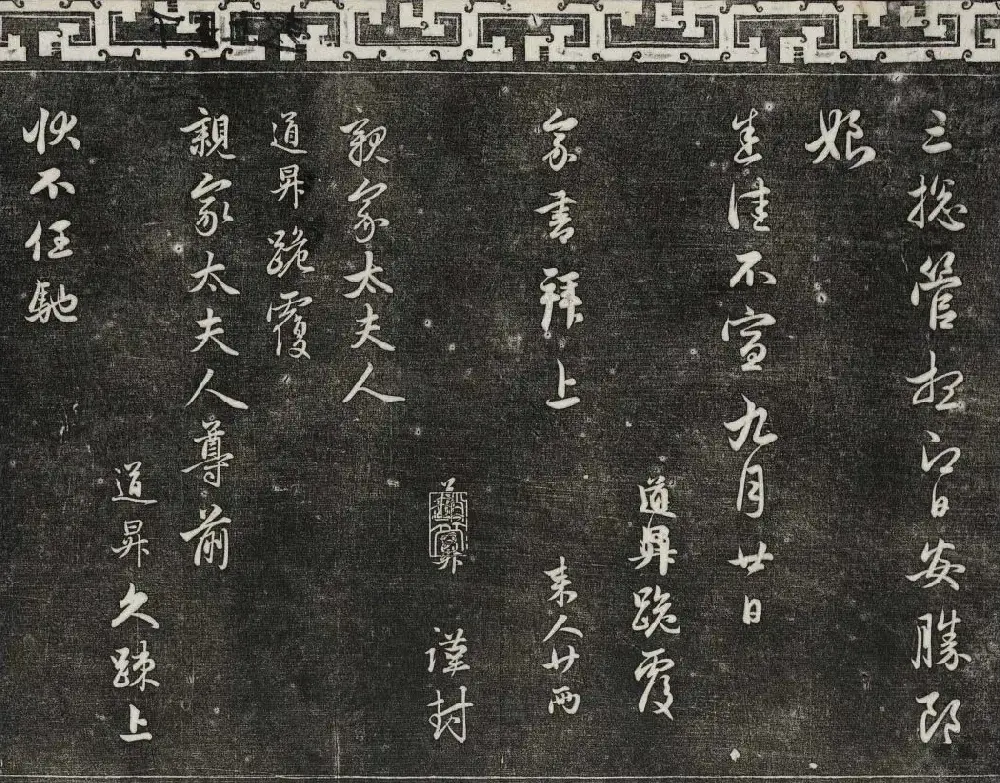 三捴管想即日安勝郎
娘
佳不宣九月廿日
道昇跪覆
家書拜上 来人廿兩
謹封
親家太夫人
道昇跪覆
親家太夫人尊前
道昇久踈上
狀不任馳